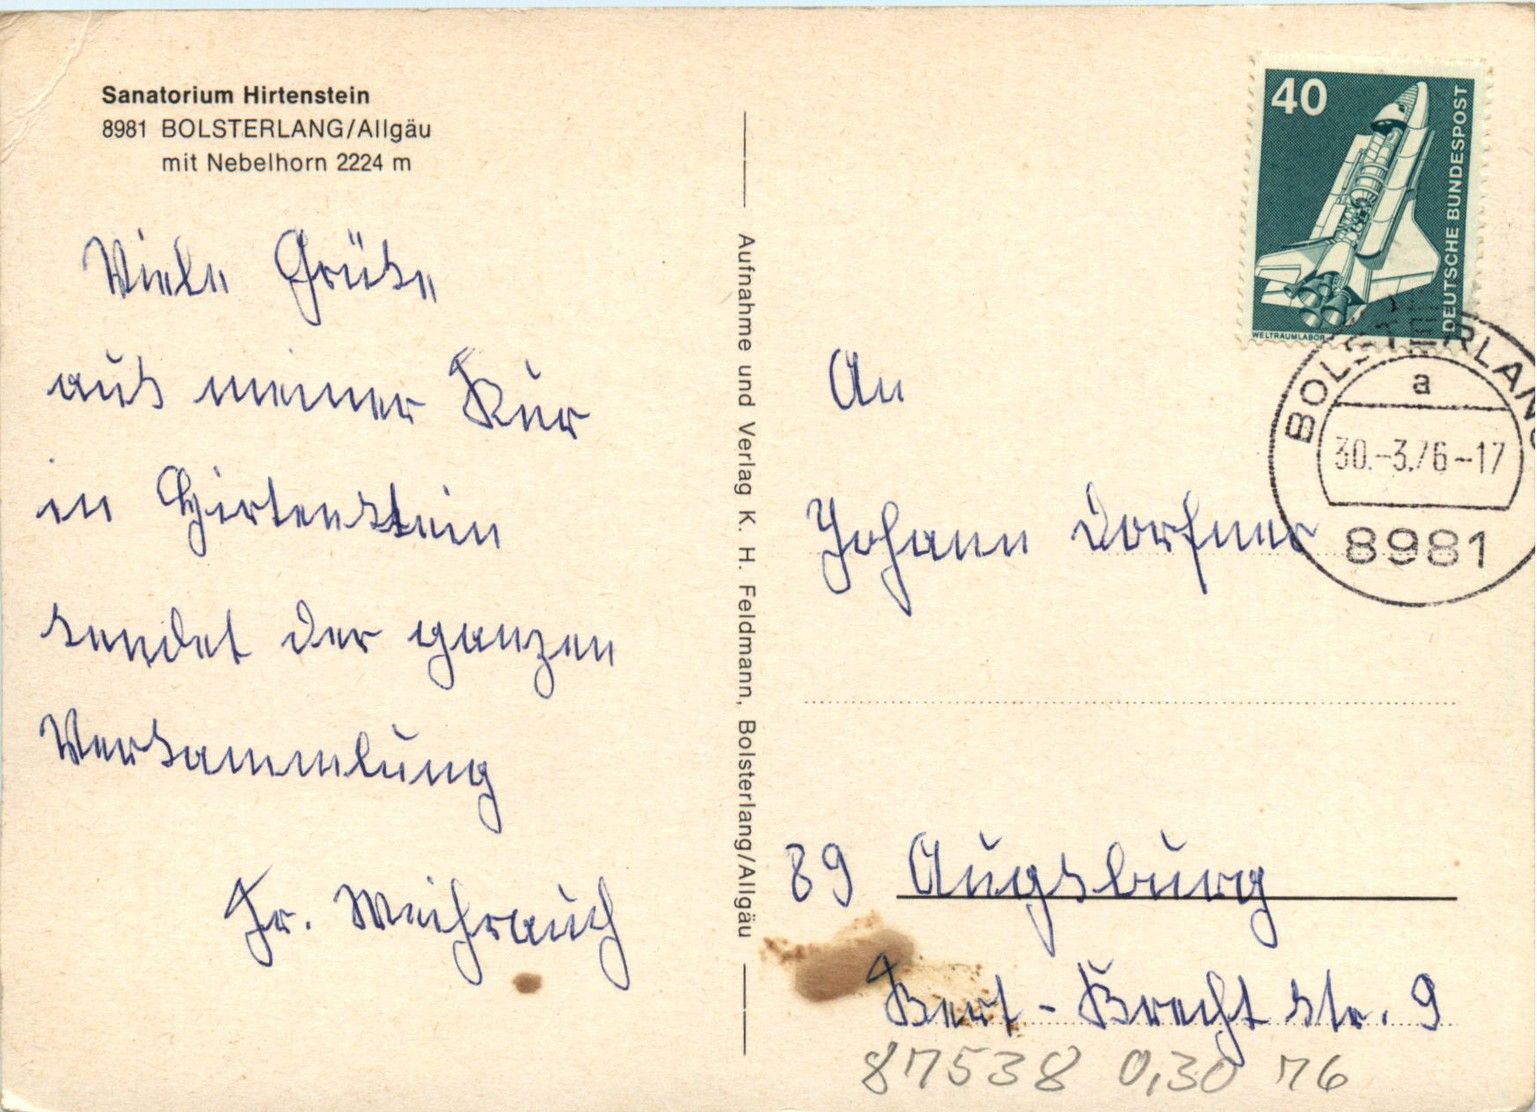 Sanatorium Hirtenstein
8981 BOLSTERLANG/Allgäu
mit Nebelhorn 2224 m
Viele Grüße
aus meiner Kur
in Hirtenstein
sendet der ganzen
Versammlung
Fr. Weihrauch
Aufnahme und Verlag K. H. Feldmann, Bolsterlang/Allgäu
40
DEUTSCHE BUNDESPOST
WELTRAUMLABOR
BOLSTERLANG
a
30.-3.76-17
8981
An
Johann Dorfner
89 Augsburg
Bert-Brecht str. 9
87538 0,30 76